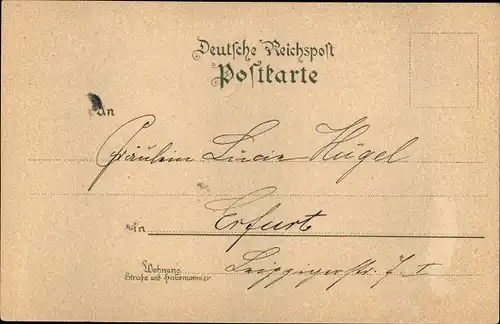 Deutsche Reichspost
Postkarte
An
Fräulein Lucie Hügel
in Erfurt
Wohnung
Straße und Hausnummer
Leipzigerstr. 7. I